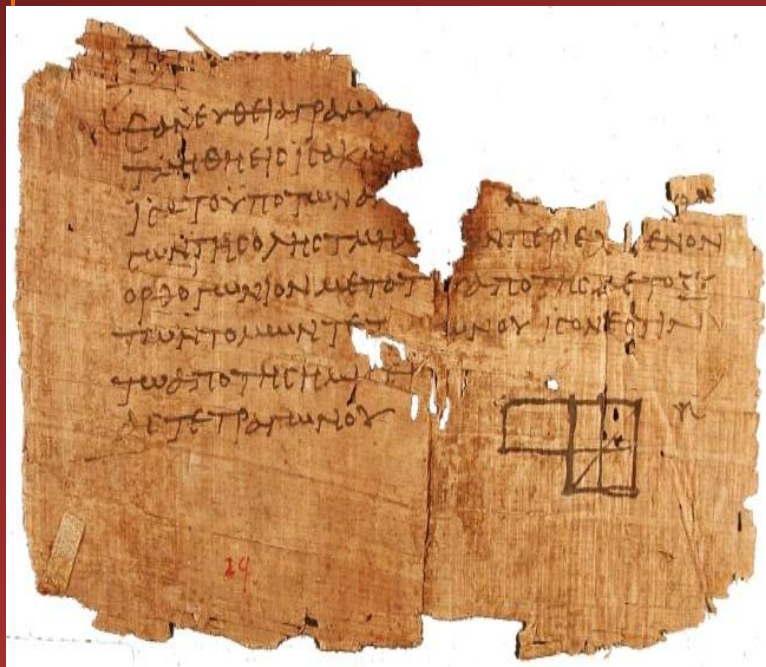 ΕΑΝ ΕΥΘΕΙΑ ΓΡΑΜΜ
ΤΜΗΘΗ ΕΙϹ ΙϹΑ ΚΑΙ Α
ΙϹΑ ΤΟ ΥΠΟ ΤΩΝ Α
ϹΩΝ ΤΗϹ ΟΛΗϹ ΤΜΗΜ ΩΝ ΠΕΡΙΕΧ ΜΕΝΟΝ
ΟΡΘΟΓΩΝΙΟΝ ΜΕΤΑ Τ ΑΠΟ ΤΗϹ ΜΕΤΟΞΥ
ΤΩΝ ΤΟΜΩΝ ΤΕΤ ΩΝΟΥ ΙϹΟΝ ΕϹΤΙΝ
ΤΩ ΑΠΟ ΤΗϹ ΗΜΙ
ΑϹ ΤΕΤΡΑΓΩΝΟΥ
29